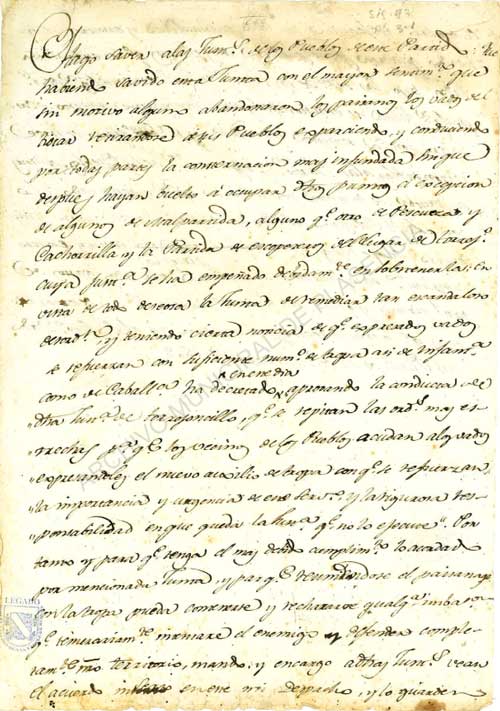 Hago Saver a las Just.s de los Pueblos de este Partido: Que
habiendo savido esta Junta con el mayor sentim.to que
sin motivo alguno abandonaron los paisanos los vados del
retirandose a sus Pueblos esparciendo, y conduciendo
por todas partes la consternacion mas infundada sin que
despues hayan buelto a ocupar dhos puntos a excepcion
de algunos de Malpartida, alguno q.e otro de Pescueza y
Cachorrilla y la Partida de escopeteros del Lugar de
cuya Just.a se ha empeñado en sobstenerlas: en
vista de todo deseosa la Junta de remediar tan escandaloso
y teniendo cierta noticia de q.e expresados vados
se refuerzan con suficiente num.o de tropa asi de Infant.a
como de Caball.a ha decretado en este dia aprovando la conducta de
dha Just.a de Torrejoncillo, q.e se repitan las ord.s mas es-
trechas p.a q.e los vecinos de los Pueblos acudan a los vados
expresandoles el nuevo auxilio de tropa con q.e se refuerzan,
la importancia y urgencia de este serv.o y la rigurosa res-
ponsabilidad en que queda la Just.a q.e no lo execute. Por
tanto y para q.e tenga el mas devido cumplim.to lo acordado
por mencionada Junta, y par q.e reuniendose el paisanage
con la tropa pueda contenerse y rechazarse qualq.a
q.e temerariam.te intentare el enemigo y defender comple-
tam.te nro territorio, mando, y encargo a dhas Just.s vean
el acuerdo inserto en este mi despacho, y lo guarden
ARCHIVO MUNICIPAL DE PLASENCIA
LEGADO